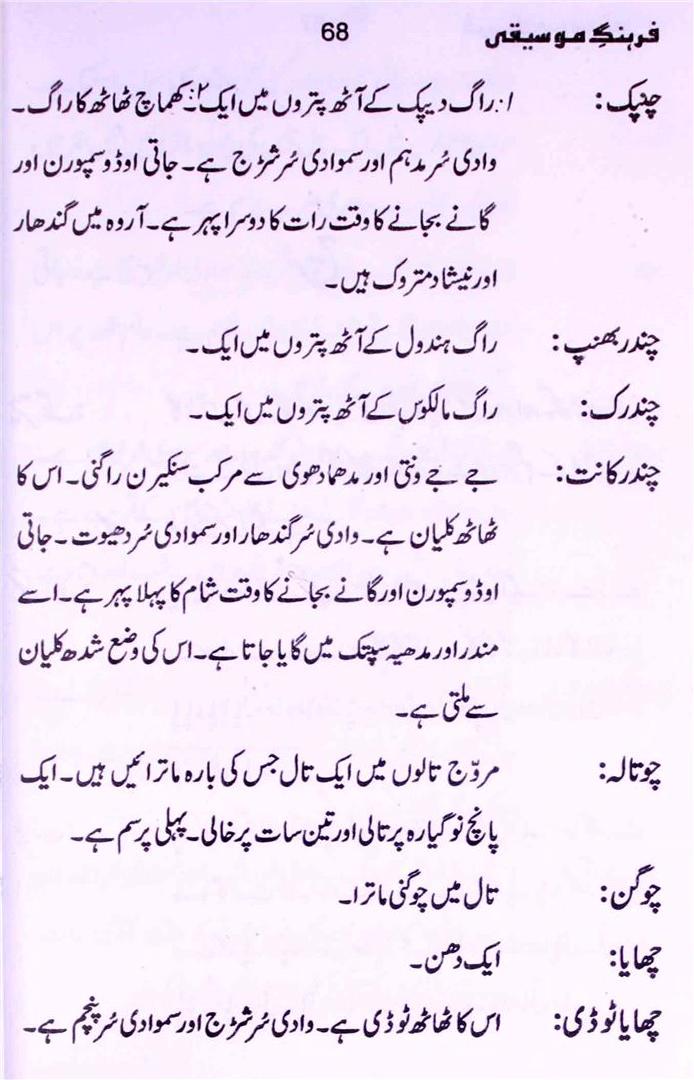 فرہنگِ موسیقی 68
چنپک: ۱: راگ دیپک کے آٹھ پتروں میں ایک ۲: کھماچ ٹھاٹھ کا راگ۔
وادی سُر مدہم اور سموادی سُر شڑج ہے۔ جاتی اوڈو سمپورن اور
گانے بجانے کا وقت رات کا دوسرا پہر ہے۔ آروہ میں گندھار
اور نیشاد متروک ہیں۔
چندر بھنپ: راگ ہندول کے آٹھ پتروں میں ایک۔
چندرک: راگ مالکوس کے آٹھ پتروں میں ایک۔
چندرکانت: جے جے ونتی اور مدھمادھوی سے مرکب سنکیرن راگنی۔ اس کا
ٹھاٹھ کلیان ہے۔ وادی سُر گندھار اور سموادی سُر دھیوت۔ جاتی
اوڈو سمپورن اور گانے بجانے کا وقت شام کا پہلا پہر ہے۔ اسے
مندر اور مدھیہ سپتک میں گایا جاتا ہے۔ اس کی وضع شدھ کلیان
سے ملتی ہے۔
چوتالہ: مروّج تالوں میں ایک تال جس کی بارہ ماترائیں ہیں۔ ایک
پانچ نو گیارہ پر تالی اور تین سات پر خالی۔ پہلی پر سم ہے۔
چوگن: تال میں چوگنی ماترا۔
چھایا: ایک دھن۔
چھایا ٹوڈی: اس کا ٹھاٹھ ٹوڈی ہے۔ وادی سُر شڑج اور سموادی سُر پنچم ہے۔